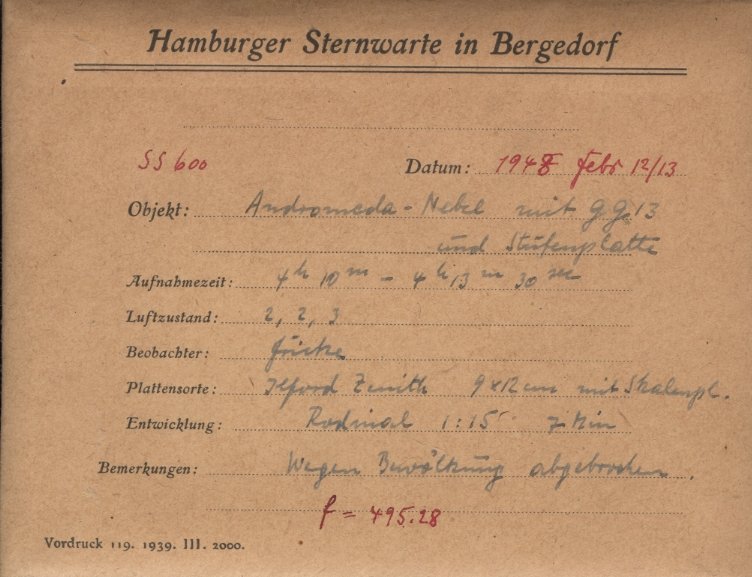 Hamburger Sternwarte in Bergedorf
SS 600 Datum: 1948 Febr 12/13
Objekt: Andromeda-Nebel mit gg 13
und Stufenplatte
Aufnahmezeit: 4h 10m - 4h 13m 30 sec
Luftzustand: 2, 2, 3
Beobachter: Fricke
Plattensorte: Ilford Zenith 9x12 cm mit Skalenpl.
Entwicklung: Rodinal 1:15 7 Min
Bemerkungen: Wegen Bewölkung abgebrochen.
f = 495.28
Vordruck 119. 1939. III. 2000.